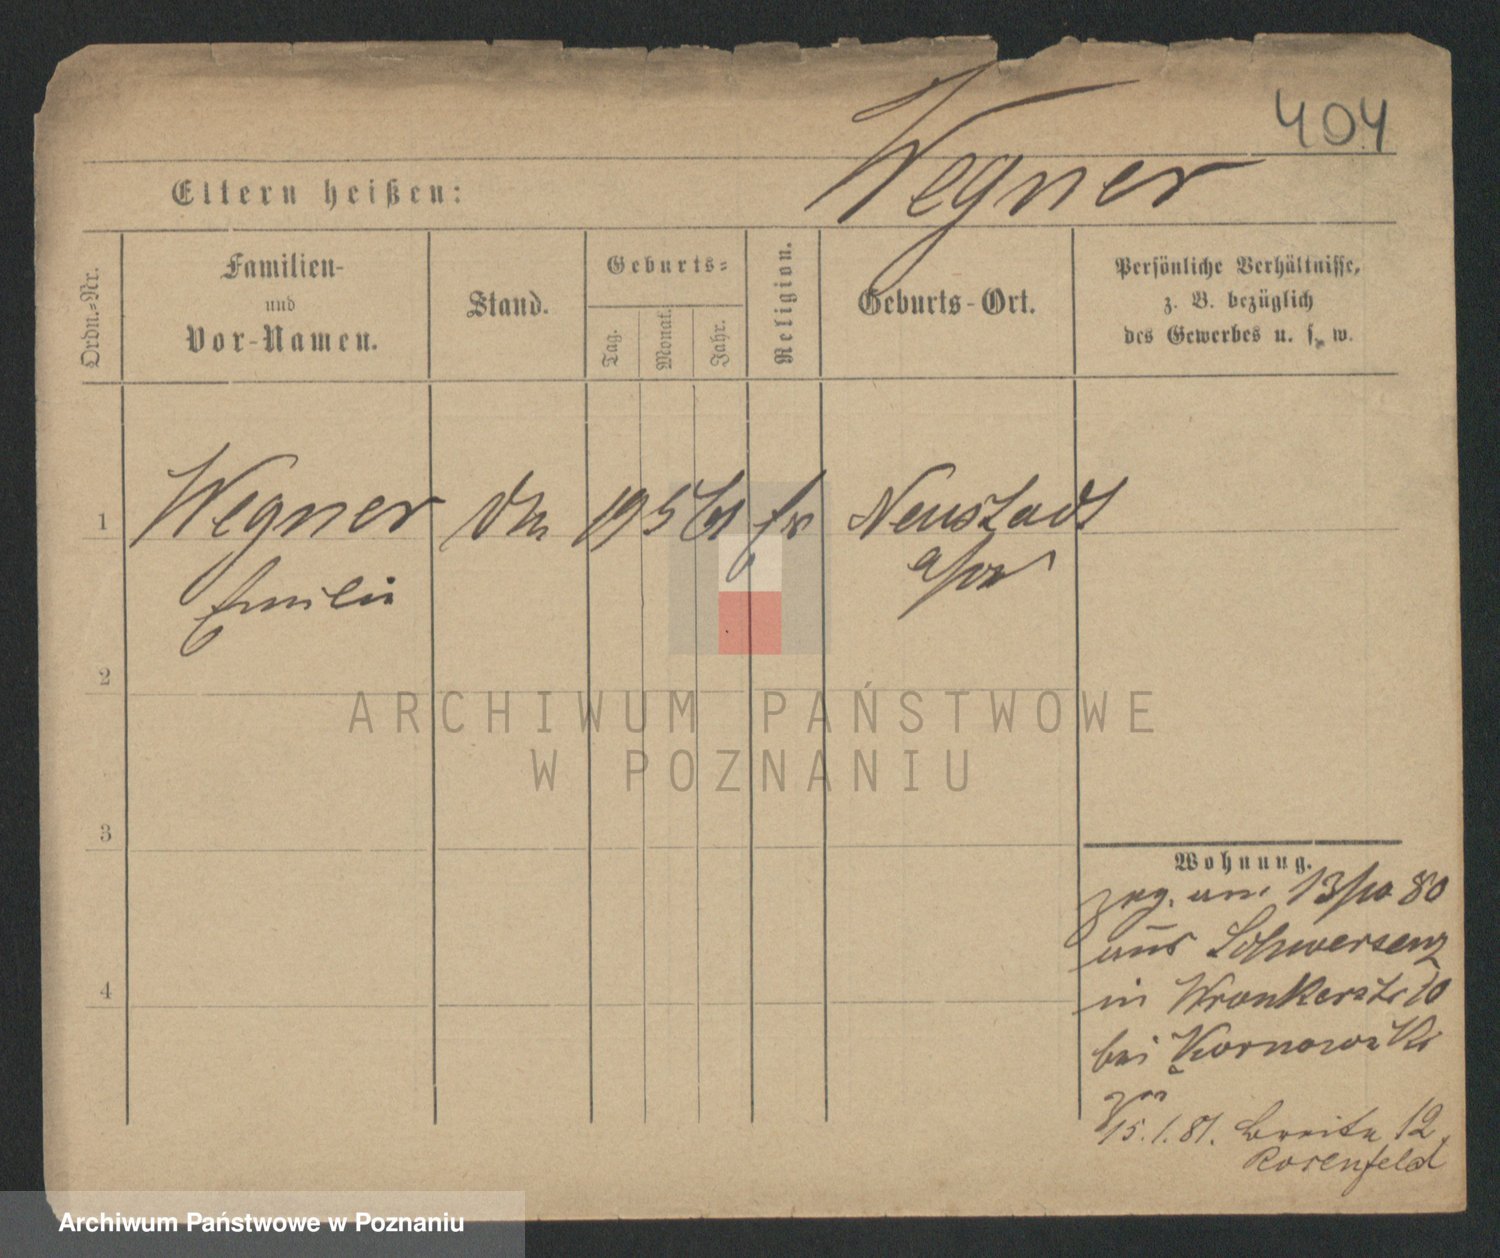 404
Wegner
Eltern heißen:
Ordn.-Nr.
Familien-
und
Vor-Namen.
Stand.
Geburts-
Tag.
Monat.
Jahr.
Religion.
Geburts-Ort.
Persönliche Verhältnisse,
z. B. bezüglich
des Gewerbes u. s. w.
1 Wegner 19 5 61 Neustadt
Emilie
2
ARCHIWUM PAŃSTWOWE
W POZNANIU
3
Wohnung.
zug. am 13/10 80
aus Schwersenz
in Wronkerstr 10
4
bei Kornowski
15.1.81. Breite 12
Rosenfeld
Archiwum Państwowe w Poznaniu